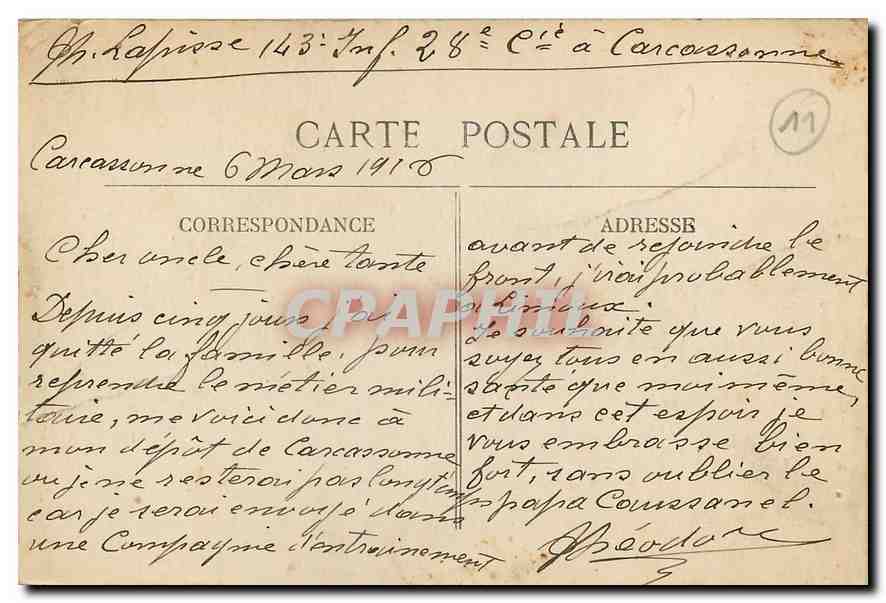 Th. Lapisse 143e Inf. 28e Cie à Carcassonne
11
CARTE POSTALE
Carcassonne 6 Mars 1916
CORRESPONDANCE
Cher oncle, chère tante
Depuis cinq jours j'ai
quitté la famille, pour
reprendre le métier mili-
taire, me voici donc à
mon dépôt de Carcassonne
ou je ne resterai pas longtemps
car je serai envoyé dans
une Compagnie d'entrainement
ADRESSE
avant de rejoindre le
front, j'irai probablement
a Limoux.
Je souhaite que vous
soyez tous en aussi bonne
santé que moi même,
et dans cet espoir je
vous embrasse bien
fort, sans oublier le
papa Caussanel.
Théodore
CPAPHIL